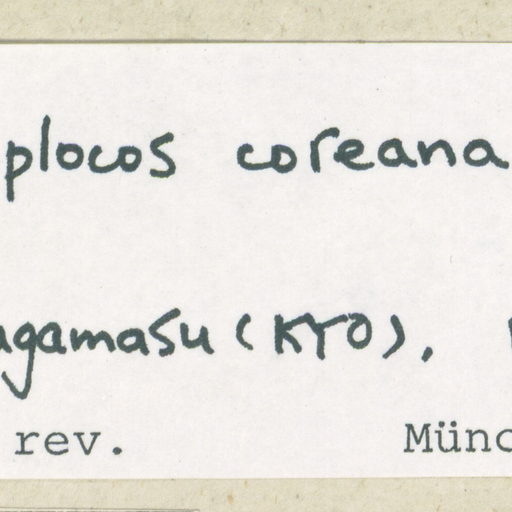 plocos coreana
agamasu (KYO),
rev. Münc